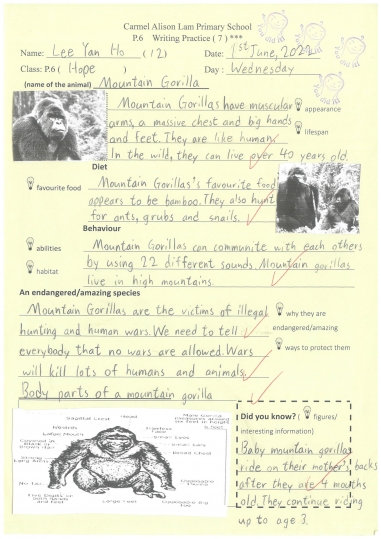 Carmel Alison Lam Primary School
P.6 Writing Practice ( 7 ) ***
Name: Lee Yan Ho (12) Date: 1st June, 2022
Class: P.6 ( Hope ) Day : Wednesday
(name of the animal) Mountain Gorilla
Mountain Gorillas have muscular
appearance
arms, a massive chest and big hands
lifespan
and feet. They are like human.
In the wild, they can live over 40 years old.
Diet
favourite food
Mountain Gorillas's favourite food
appears to be bamboo. They also hunt
for ants, grubs and snails.
Behaviour
abilities
habitat
Mountain Gorillas can communite with each others
by using 22 different sounds. Mountain gorillas
live in high mountains.
An endangered/amazing species
Mountain Gorillas are the victims of illegal
why they are
endangered/amazing
hunting and human wars. We need to tell
ways to protect them
everybody that no wars are allowed. Wars
will kill lots of humans and animals.
Body parts of a mountain gorilla
Sagittal Crest
Head
Nostrils
Large Mouth
Large Feet
Did you know? figures/
interesting information)
Baby mountain gorillas
ride on their mother's backs
after they are 4 mouths
old. They continue riding
up to age 3.